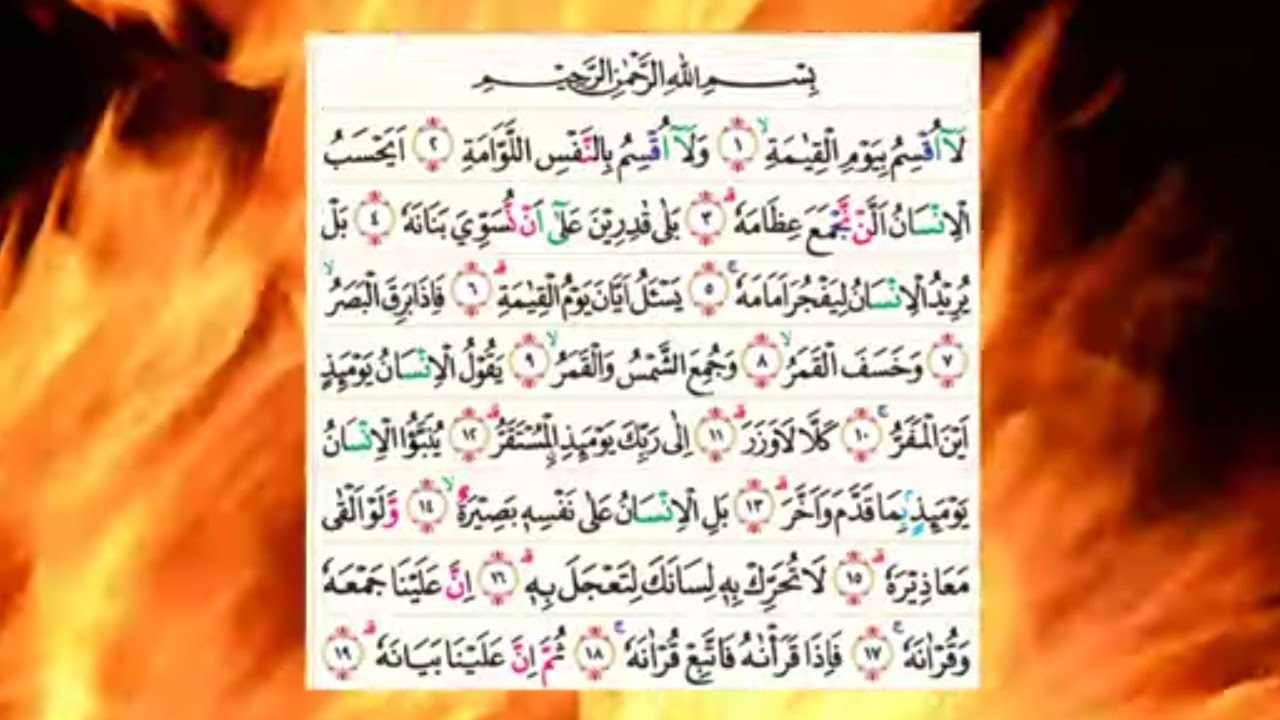 بِسْمِ اللهِ الرَّحْمٰنِ الرَّحِيْمِ
لَآ اُقْسِمُ بِيَوْمِ الْقِيٰمَةِ ۙ ١ وَلَآ اُقْسِمُ بِالنَّفْسِ اللَّوَّامَةِ ٢ اَيَحْسَبُ
الْاِنْسَانُ اَلَّنْ نَّجْمَعَ عِظَامَهٗ ۗ ٣ بَلٰى قٰدِرِيْنَ عَلٰٓى اَنْ نُّسَوِّيَ بَنَانَهٗ ٤ بَلْ
يُرِيْدُ الْاِنْسَانُ لِيَفْجُرَ اَمَامَهٗ ۚ ٥ يَسْـَٔلُ اَيَّانَ يَوْمُ الْقِيٰمَةِ ۗ ٦ فَاِذَا بَرِقَ الْبَصَرُ ۙ
٧ وَخَسَفَ الْقَمَرُ ۙ ٨ وَجُمِعَ الشَّمْسُ وَالْقَمَرُ ۙ ٩ يَقُوْلُ الْاِنْسَانُ يَوْمَىِٕذٍ
اَيْنَ الْمَفَرُّ ۚ ١٠ كَلَّا لَا وَزَرَ ۗ ١١ اِلٰى رَبِّكَ يَوْمَىِٕذِ ِۨالْمُسْتَقَرُّ ۗ ١٢ يُنَبَّؤُا الْاِنْسَانُ
يَوْمَىِٕذٍۢ بِمَا قَدَّمَ وَاَخَّرَ ۗ ١٣ بَلِ الْاِنْسَانُ عَلٰى نَفْسِهٖ بَصِيْرَةٌ ۙ ١٤ وَّلَوْ اَلْقٰى
مَعَاذِيْرَهٗ ۗ ١٥ لَا تُحَرِّكْ بِهٖ لِسَانَكَ لِتَعْجَلَ بِهٖ ۗ ١٦ اِنَّ عَلَيْنَا جَمْعَهٗ
وَقُرْاٰنَهٗ ۚ ١٧ فَاِذَا قَرَأْنٰهُ فَاتَّبِعْ قُرْاٰنَهٗ ۚ ١٨ ثُمَّ اِنَّ عَلَيْنَا بَيَانَهٗ ۗ ١٩